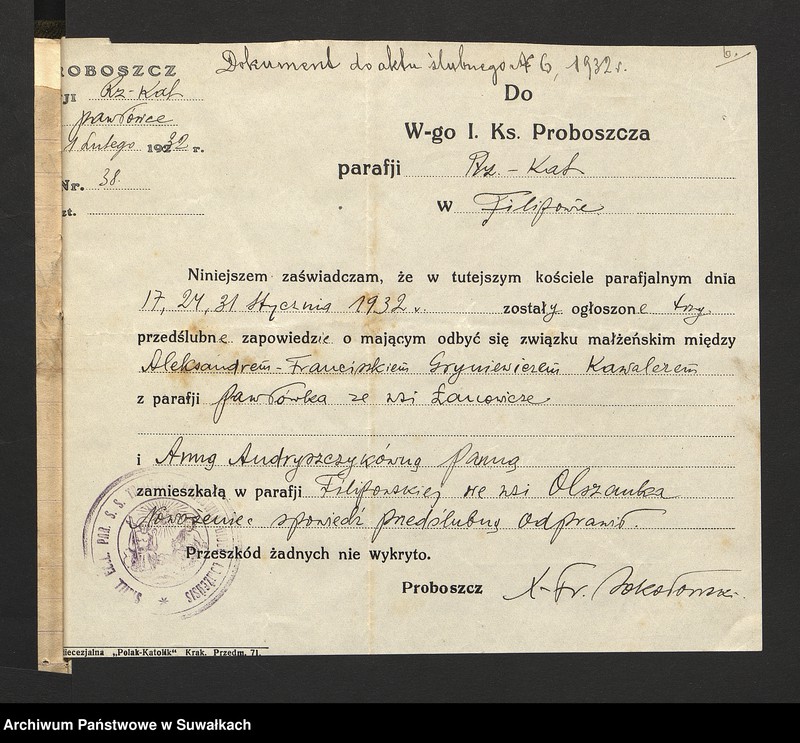 Dokument do aktu ślubnego № 6, 1932 r.
6.
ROBOSZCZ
ji Rz-Kat
Pawłówce
1 Lutego 1932 r.
Nr. 38.
zt.
Do
W-go I. Ks. Proboszcza
parafji Rz.-Kat
w Filipowie
Niniejszem zaświadczam, że w tutejszym kościele parafjalnym dnia
17, 24, 31 Stycznia 1932 r. zostały ogłoszone trzy
przedślubne zapowiedzie o mającym odbyć się związku małżeńskim między
Aleksandrem-Franciszkiem Gryniewiczem Kawalerem
z parafji Pawłówka ze wsi Łanowicze
i Anną Andryszczykówną Panną
zamieszkałą w parafji Filipowskiej we wsi Olszanka
Nowożeniec spowiedź przedślubną odprawił.
Przeszkód żadnych nie wykryto.
Proboszcz X-Fr. Sokołowski.
SIGILL. ECCL. PAR. S. S.
iecezjalna „Polak-Katolik" Krak. Przedm. 71.
Archiwum Państwowe w Suwałkach